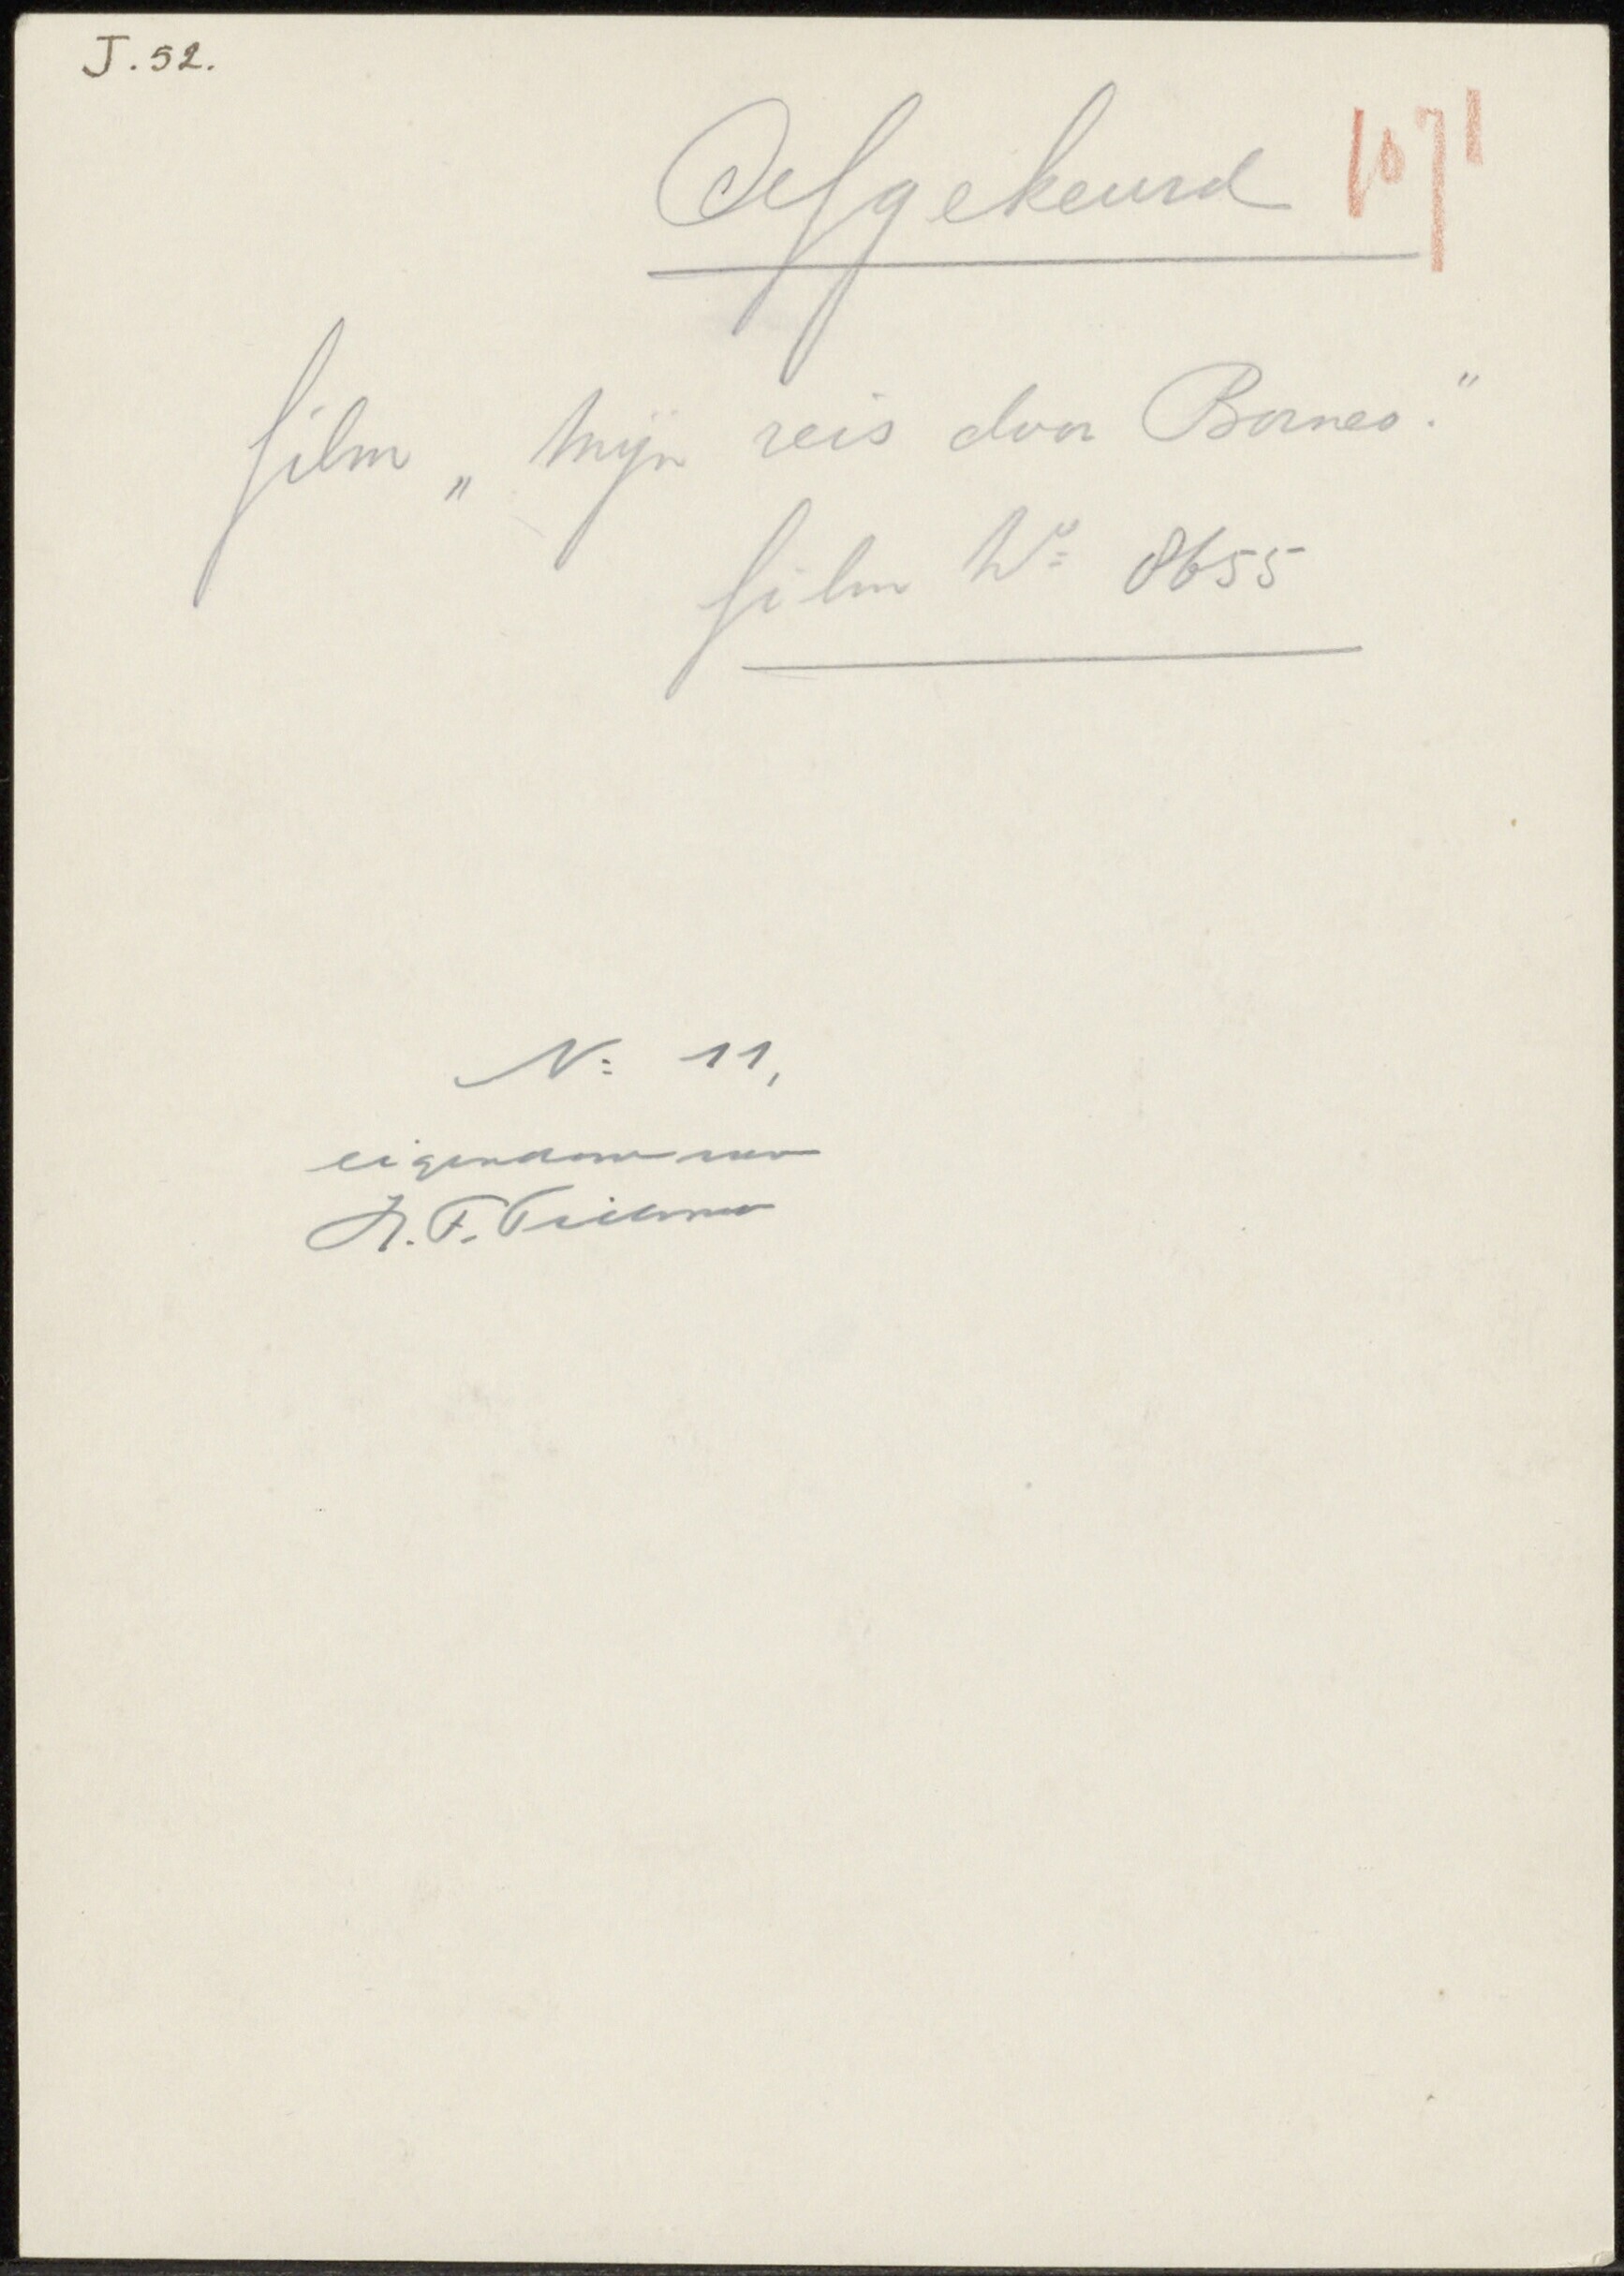 J. 52.
Afgekeurd 1071
film „Mijn reis door Borneo."
film No 8655
No 11,
eigendom van
H. F. Tillema